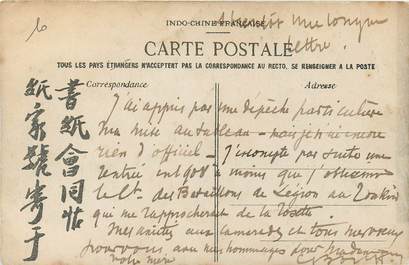 INDO-CHINE FRANÇAISE
une longue
lettre.
CARTE POSTALE
TOUS LES PAYS ÉTRANGERS N'ACCEPTENT PAS LA CORRESPONDANCE AU RECTO, SE RENSEIGNER A LA POSTE
Correspondance
Adresse
書紙會同
紙家號寄于
J'ai appris par une dépêche particulière
ma mise au tableau — mais je n'ai encore
rien d'officiel — J'escompte par suite une
rentrée à moins que j'obtienne
le Ct. des Bataillons de Légion au Tonkin
qui me rapprocherait de la
Mes amitiés aux camarades et tous mes vœux
pour vous, avec mes hommages pour Madame
votre mère